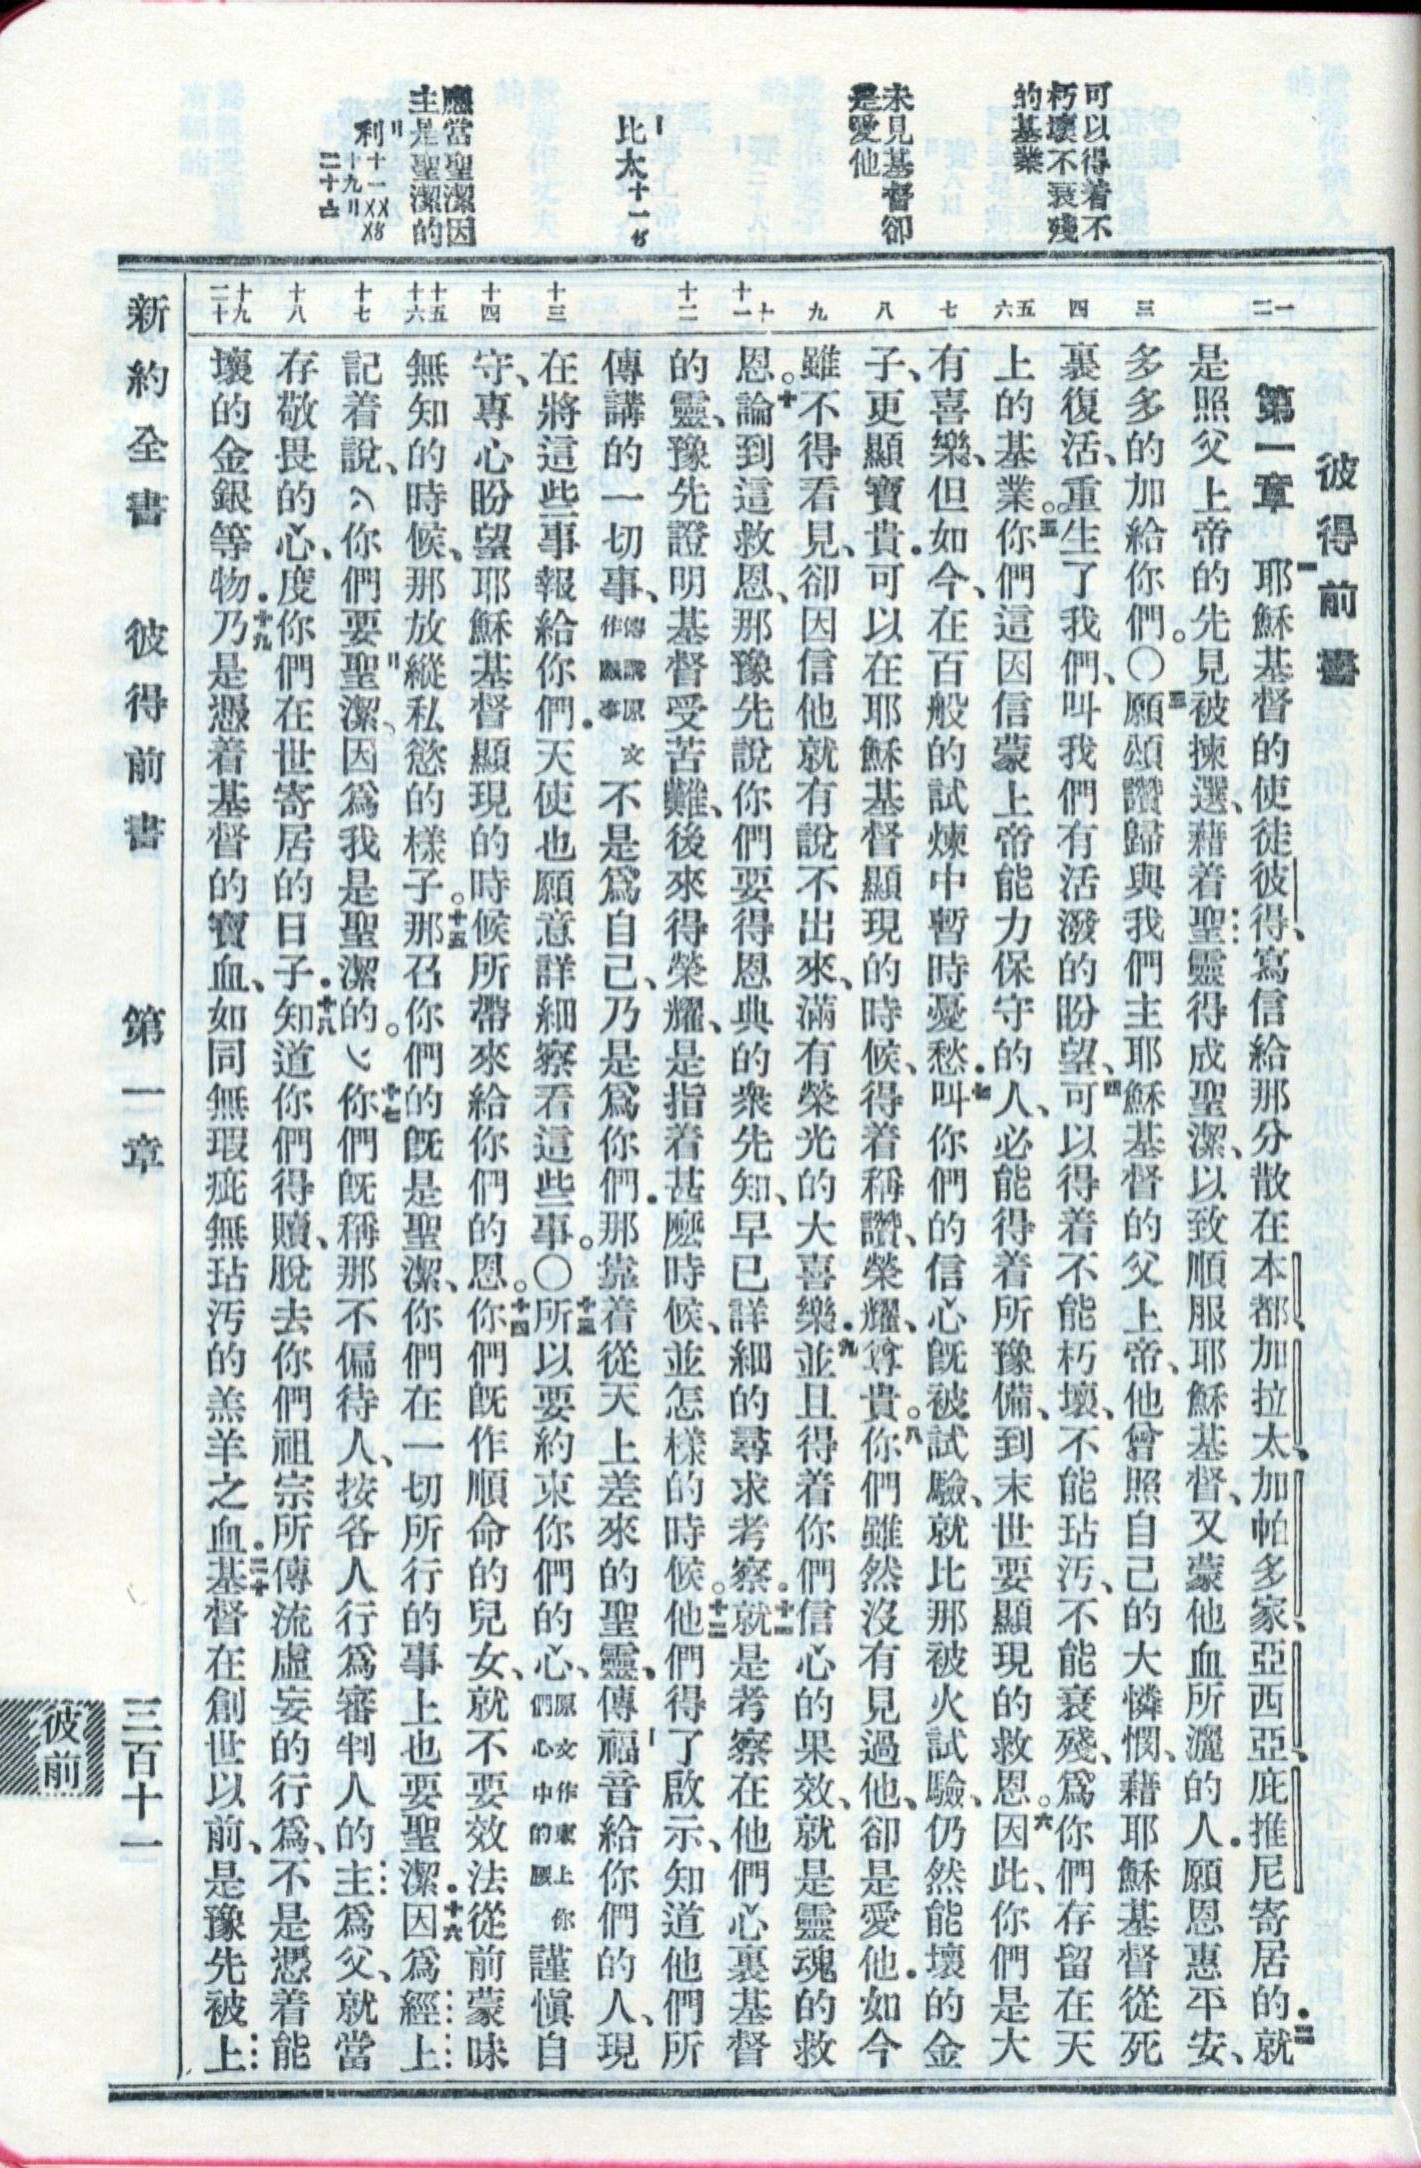 可以得着不
朽壞不衰殘
的基業
未見基督卻
是愛他
比太十一
應當聖潔因
主是聖潔的
利十一
十九
二十六
一二
三
四
五六
七
八
九
十十一
十二
十三
十四
十五十六
十七
十八
十九二十
彼得前書
第一章 耶穌基督的使徒彼得、寫信給那分散在本都、加拉太、加帕多家、亞西亞、庇推尼寄居的.二就
是照父上帝的先見被揀選、藉着聖靈得成聖潔、以致順服耶穌基督、又蒙他血所灑的人.願恩惠平安、
多多的加給你們。〇三願頌讚歸與我們主耶穌基督的父上帝、他曾照自己的大憐憫、藉耶穌基督從死
裏復活、重生了我們、叫我們有活潑的盼望、四可以得着不能朽壞、不能玷汚、不能衰殘、爲你們存留在天
上的基業。五你們這因信蒙上帝能力保守的人、必能得着所豫備、到末世要顯現的救恩。六因此、你們是大
有喜樂、但如今、在百般的試煉中暫時憂愁.七叫你們的信心旣被試驗、就比那被火試驗、仍然能壞的金
子、更顯寶貴.可以在耶穌基督顯現的時候、得着稱讚、榮耀、尊貴。八你們雖然沒有見過他、卻是愛他.如今
雖不得看見、卻因信他就有說不出來、滿有榮光的大喜樂.九並且得着你們信心的果效、就是靈魂的救
恩。十論到這救恩、那豫先說你們要得恩典的衆先知、早已詳細的尋求考察.十一就是考察在他們心裏基督
的靈、豫先證明基督受苦難、後來得榮耀、是指着甚麽時候、並怎樣的時候。十二他們得了啟示、知道他們所
傳講的一切事、傳講原文作服事不是爲自己、乃是爲你們.那靠着從天上差來的聖靈、傳福音給你們的人、現
在將這些事報給你們.天使也願意詳細察看這些事。〇十三所以要約束你們的心、原文作束上你們心中的腰謹愼自
守、專心盼望耶穌基督顯現的時候所帶來給你們的恩。十四你們旣作順命的兒女、就不要效法從前蒙昧
無知的時候、那放縱私慾的樣子。十五那召你們的旣是聖潔、你們在一切所行的事上也要聖潔.十六因爲經上
記着說、你們要聖潔因爲我是聖潔的。十七你們旣稱那不偏待人、按各人行爲審判人的主爲父、就當
存敬畏的心、度你們在世寄居的日子.十八知道你們得贖、脫去你們祖宗所傳流虛妄的行爲、不是憑着能
壞的金銀等物.十九乃是憑着基督的寶血、如同無瑕疵無玷汚的羔羊之血.二十基督在創世以前、是豫先被上
新約全書 彼得前書 第一章 三百十一
彼前